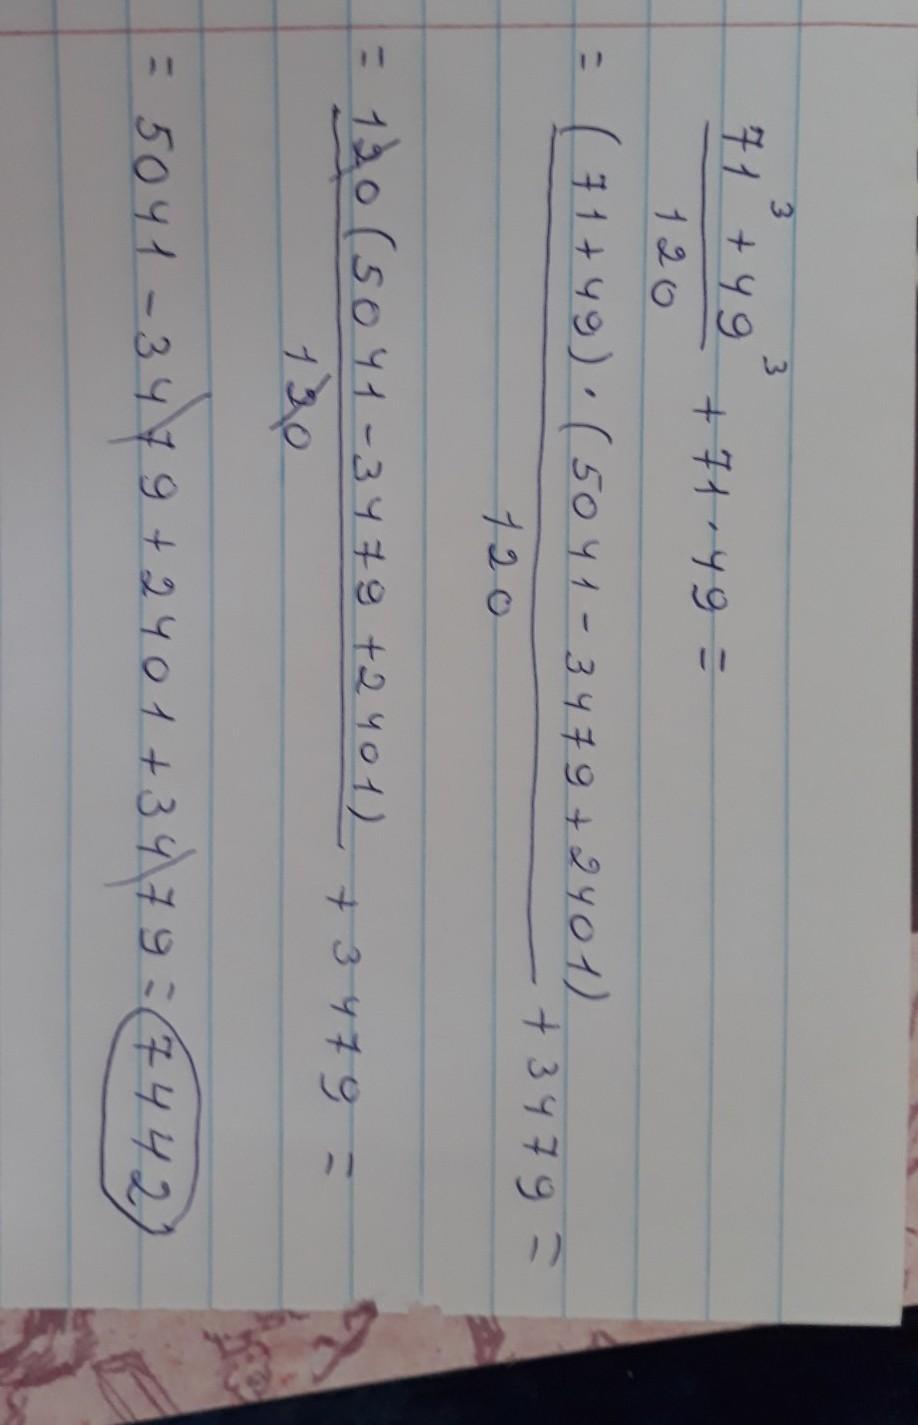 71³ + 49³ / 120 + 71 · 49 =
= (71 + 49) · (5041 - 3479 + 2401) / 120 + 3479 =
= 120 (5041 - 3479 + 2401) / 120 + 3479 =
= 5041 - 3479 + 2401 + 3479 = 7442